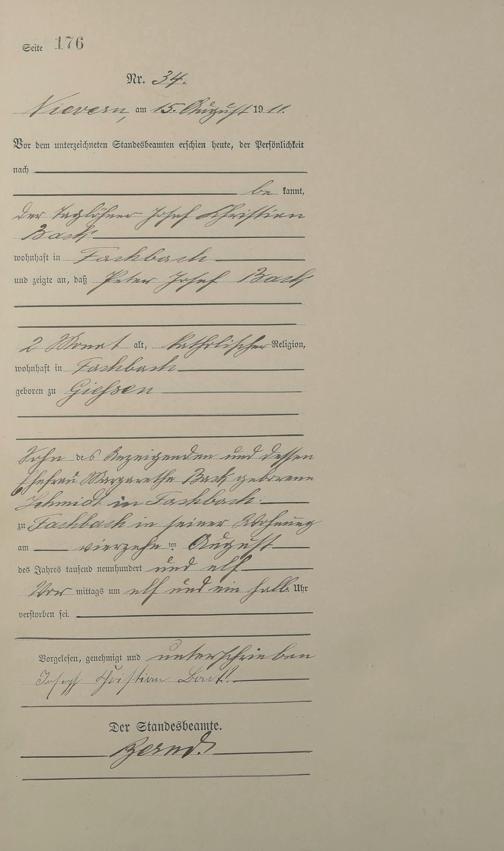 Seite 176
Nr. 34.
Nievern, am 15. August 1911.
Vor dem unterzeichneten Standesbeamten erschien heute, der Persönlichkeit
nach
be kannt,
der Taglöhner Josef Christian
Back
wohnhaft in Fachbach
und zeigte an, daß Peter Josef Back
2 Monat alt, katholischer Religion,
wohnhaft in Fachbach
geboren zu Giessen
Sohn des Anzeigenden und dessen
Ehefrau Margarethe Back geborene
Schmidt in Fachbach
zu Fachbach in seiner Wohnung
am vierzehn ten August
des Jahres tausend neunhundert und elf
Vor mittags um elf und ein halb Uhr
verstorben sei.
Vorgelesen, genehmigt und unterschrieben
Joseph Christian Back
Der Standesbeamte.